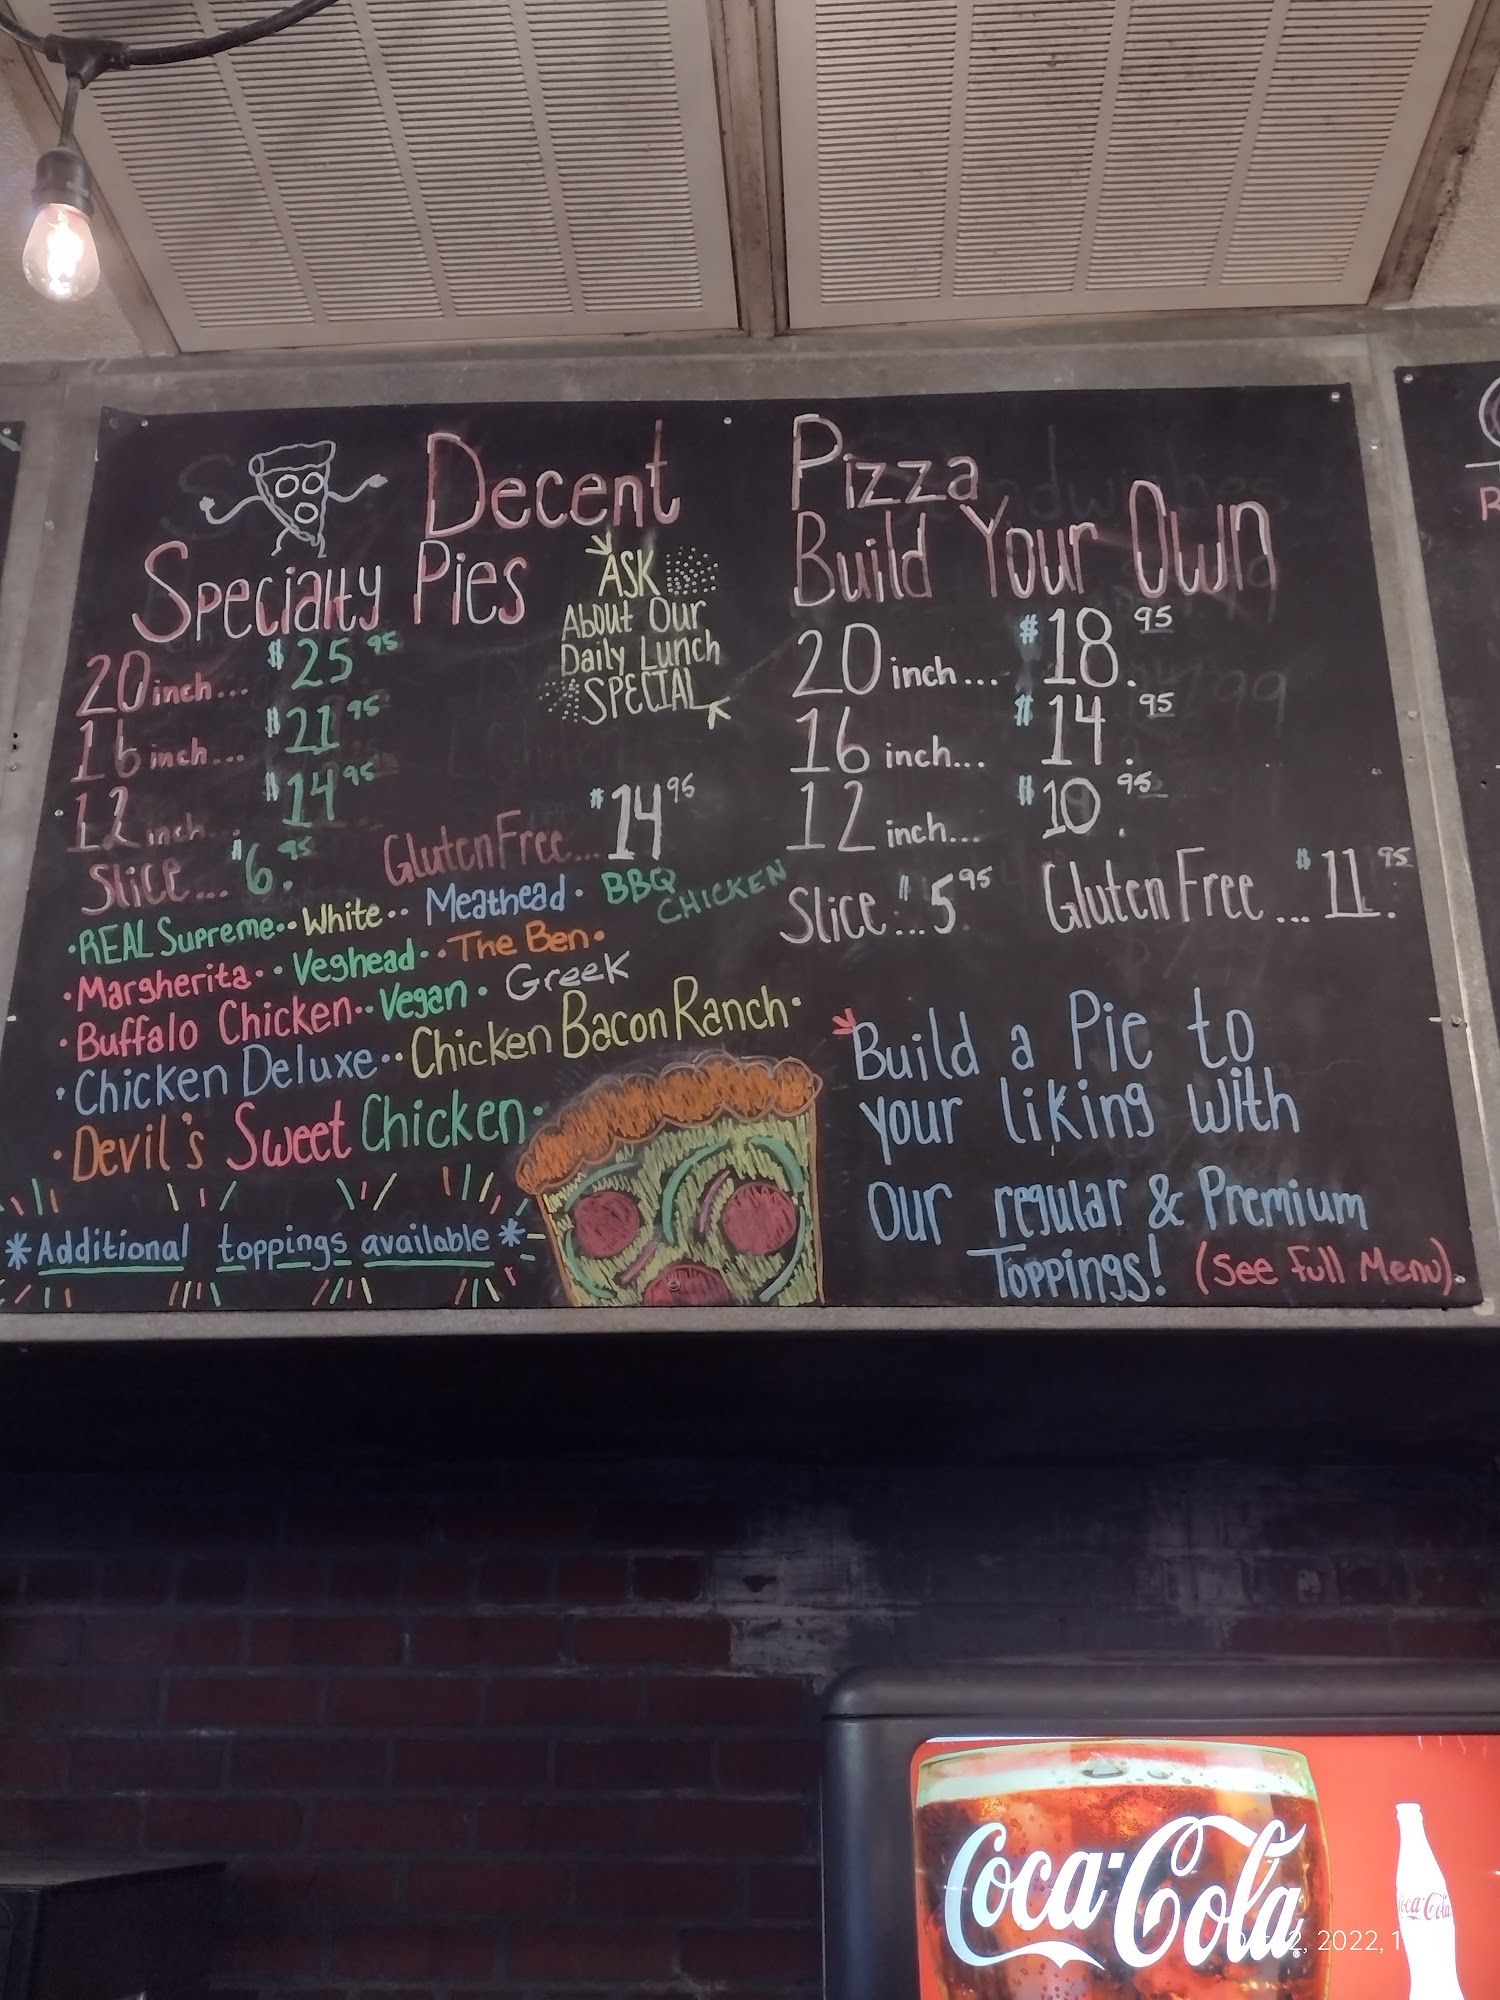 Decent Pizza
Specialty Pies
ASK
About Our
Daily Lunch
SPECIAL
20 inch... $25.95
16 inch... $21.95
12 inch... $14.95
Slice... $6.95
Gluten Free... $14.95
·REAL Supreme·· White·· Meathead· BBQ CHICKEN
·Margherita·· Veghead·· The Ben·
·Buffalo Chicken·· Vegan· Greek
·Chicken Deluxe·· Chicken Bacon Ranch·
·Devil's Sweet Chicken·
*Additional toppings available*
Build Your Own
20 inch... $18.95
16 inch... $14.95
12 inch... $10.95
Slice... $5.95 Gluten Free... $11.95
*Build a Pie to
your liking with
Our regular & Premium
Toppings! (See Full Menu).
Coca-Cola
Coca-Cola
2, 2022, 1